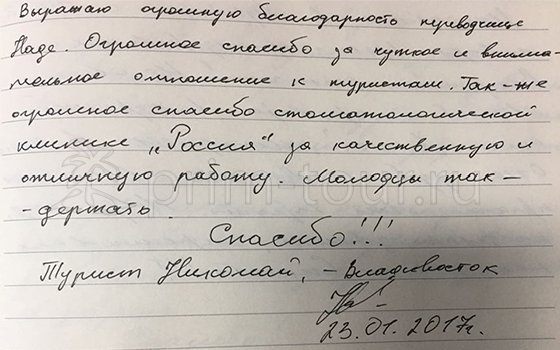 Выражаю огромную благодарность переводчице
Наде. Огромное спасибо за чуткое и внима-
тельное отношение к туристам. Так-же
огромное спасибо стоматологической
клинике „Россия" за качественную и
отличную работу. Молодцы так-
-держать.
Спасибо!!!
Турист Николай, - Владивосток
23.01.2017г.
prim-tour.ru